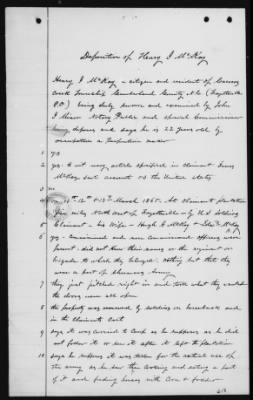 Deposition of Henry J McKay
Henry J McKay a citizen and resident of Carvers
Creek Township Cumberland County N.C. (Fayetteville
P.O.) being duly sworn and examined by John
Notary Public and special Commissioner
deposes and says he is 22 years old by
occupation a Turpentine maker
1 yes
2 yes. to wit every article specified in claimant James
McKay best account vs the United States
3 no
4 on 11th 12th & 13th March 1865. At Claimants plantation
five miles North east of Fayetteville by U.S. Soldiers
5 Claimant his Wife Hugh E McKay & John McKay
6 yes Commissioned and non Commissioned officers were
present. did not know their names or the regiment or
brigade to which they belonged. nothing but that they
were a part of Shermans Army
7 they just pitched right in and took what they wanted
the doors were all open
8 the property was removed by soldiers on horseback and
in the Claimants Cart
9 says it was carried to Camp as he supposes as he did
not follow it or see it after it left the plantation
10 says he supposes it was taken for the actual use of
the army as he saw them Cooking and eating a part
of it and feeding horses with Corn & fodder